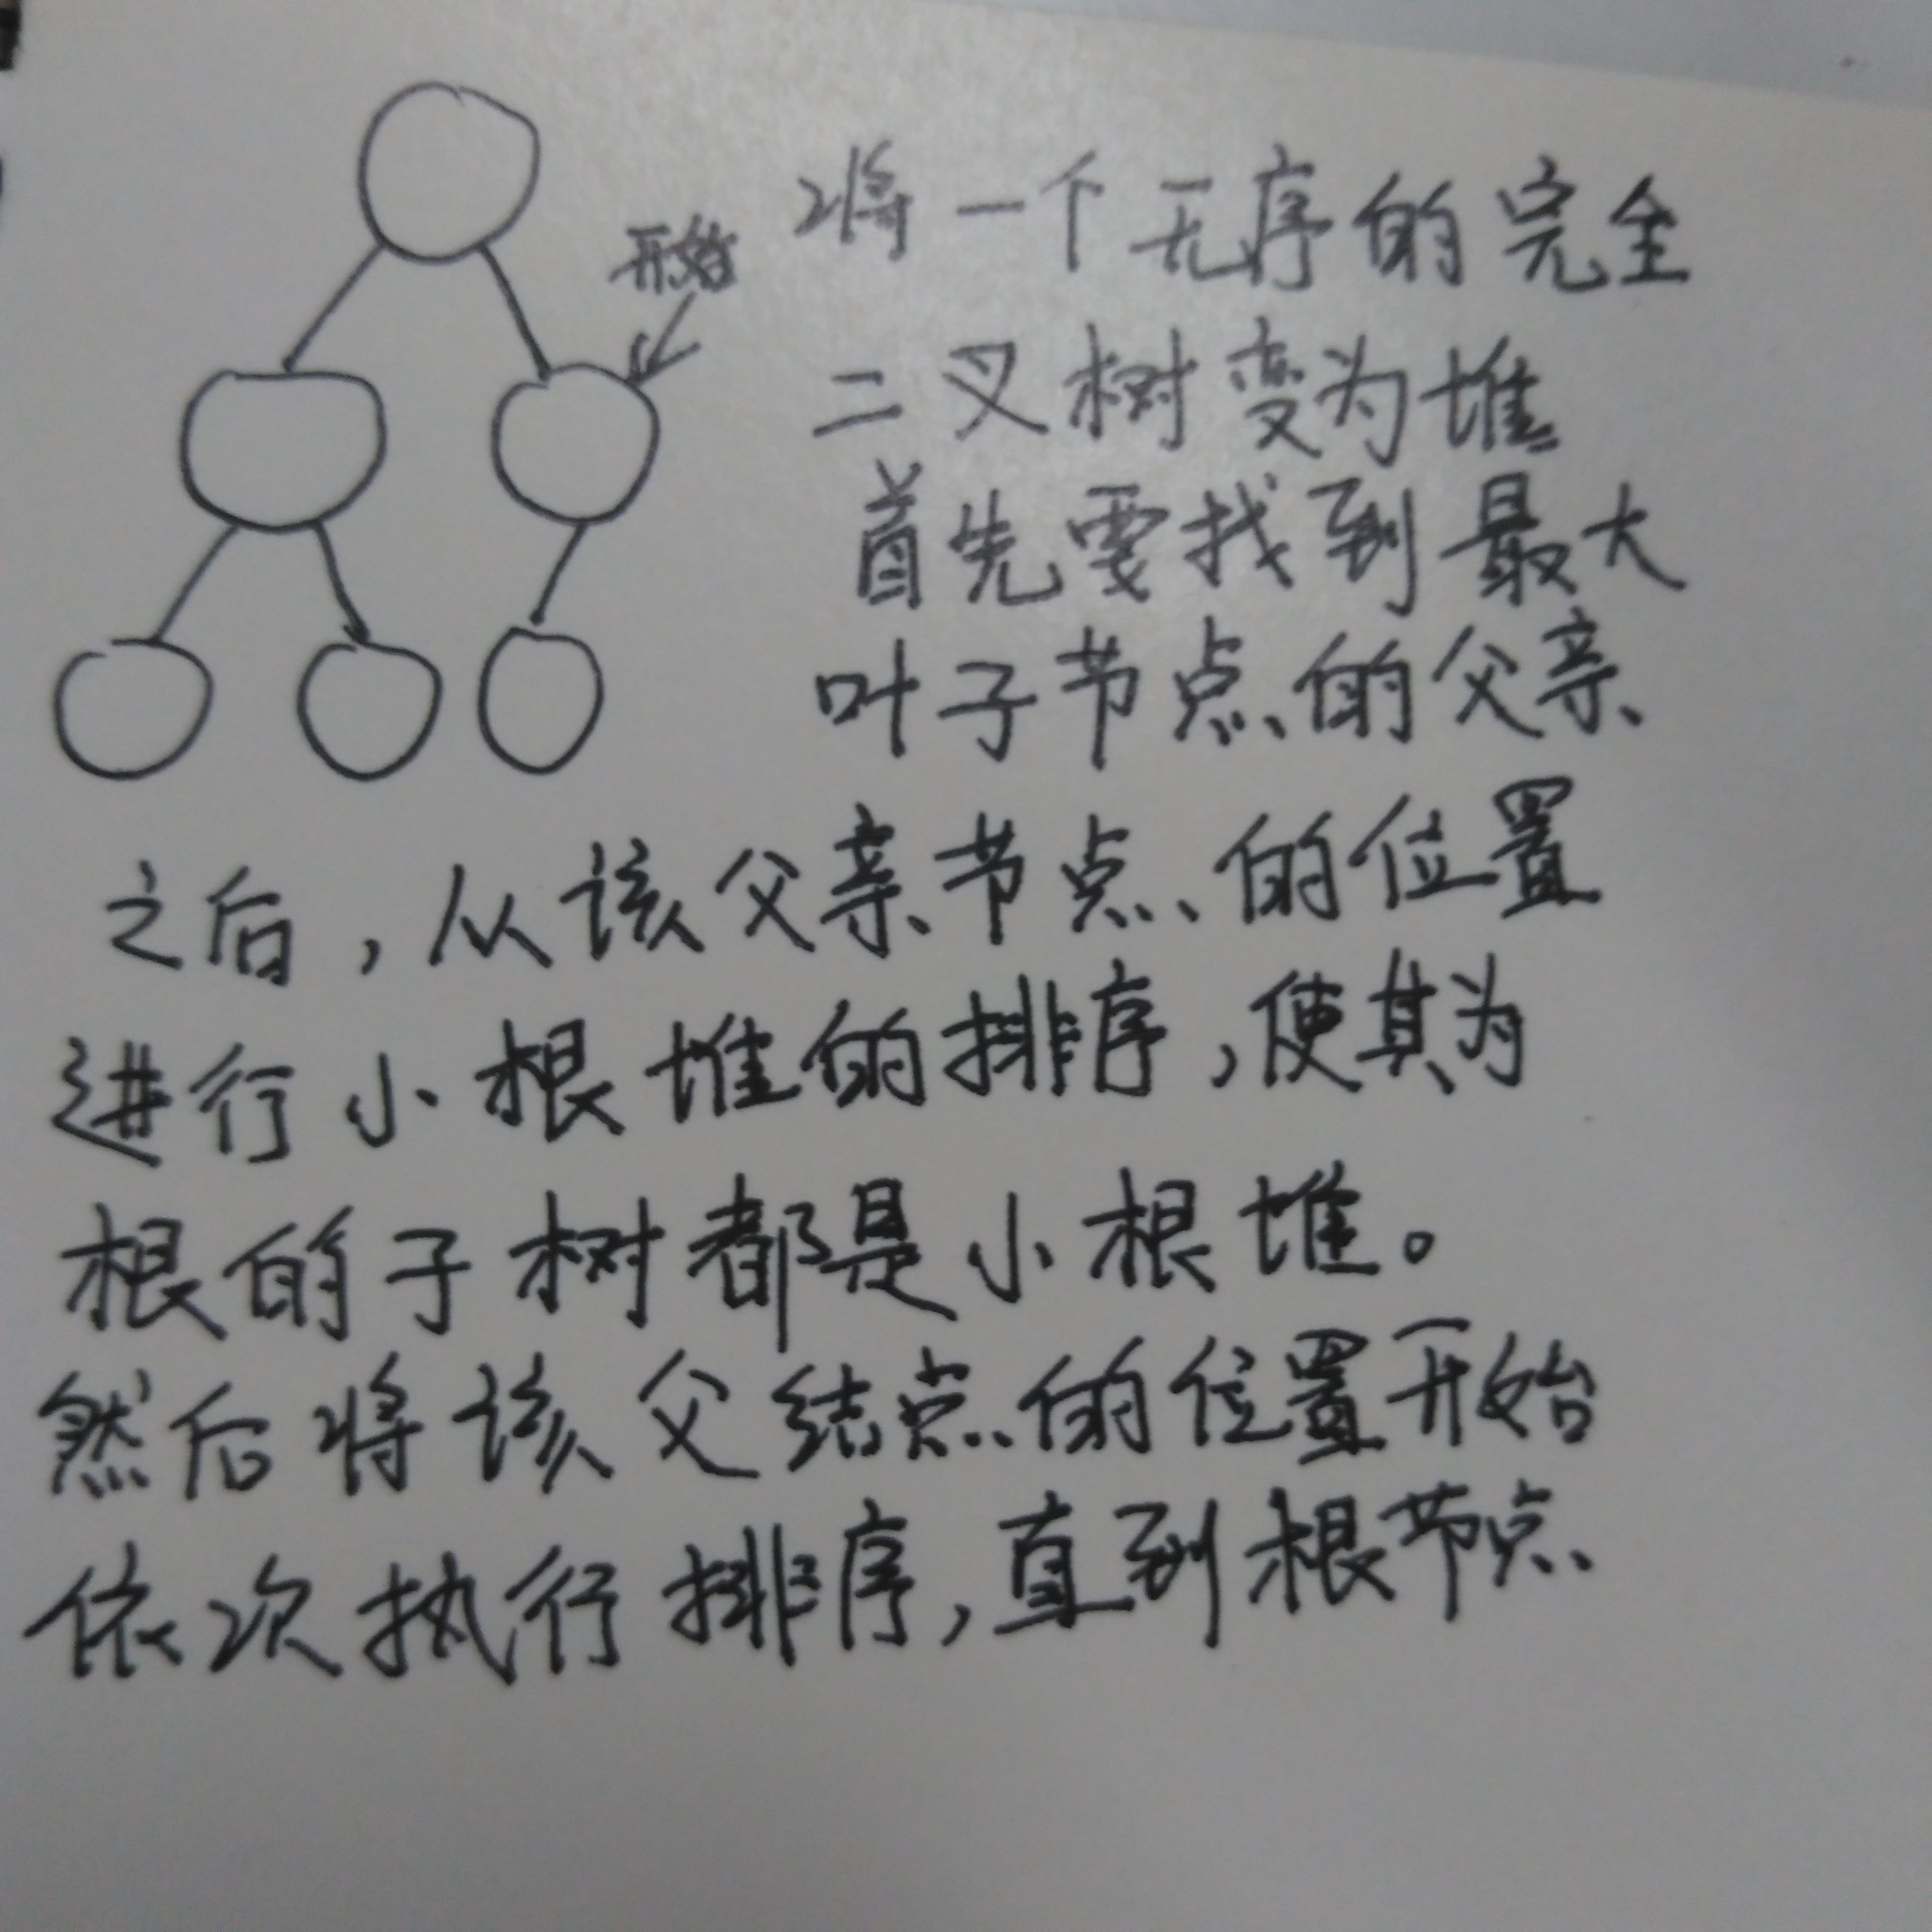 开始
将一个无序的完全
二叉树变为堆
首先要找到最大
叶子节点的父亲
之后，从该父亲节点的位置
进行小根堆的排序，使其为
根的子树都是小根堆。
然后将该父结点的位置开始
依次执行排序，直到根节点